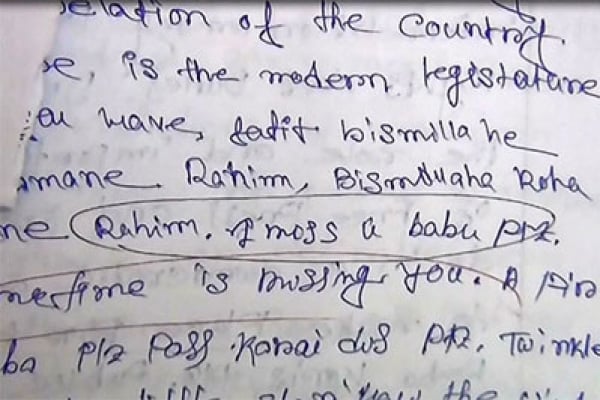 elation of the country.
se, is the modern legistature
ou wave, fatit bismilla he
mane. Rahim, Bismiuaha Roha
ne Rahim. I moss a babu plz.
metime is missing you. A
ba plz Pass Karai dos plz. Twinkle
the